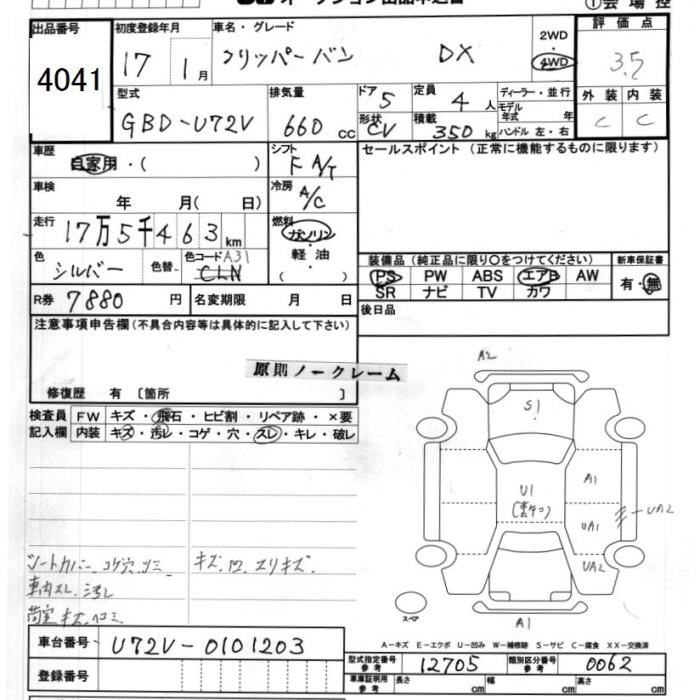 オークション出品申込書
①会場控
出品番号 4041
初度登録年月 17 1月
車名・グレード クリッパーバン DX
2WD 4WD
評価点 3.5
外装 C 内装 C
型式 GBD-U72V
排気量 660 cc
ドア 5 形状 CV
定員 4人
積載 350 kg
ディーラー・並行
モデル年式 年
ハンドル 左・右
車歴 自家用・( )
シフト F A/T
セールスポイント (正常に機能するものに限ります)
車検 年 月( 日)
冷房 A/C
走行 17万5千463km
燃料 ガソリン・軽油・( )
色 シルバー 色替 色コード A31 CLN
装備品(純正品に限り○をつけてください)
PS PW ABS エアB AW
SR ナビ TV カワ
新車保証書 有・無
R券 7880 円
名変期限 月 日
後日品
注意事項申告欄(不具合内容等は具体的に記入して下さい)
原則ノークレーム
修復歴 有 〔箇所 〕
検査員記入欄
FW キズ・飛石・ヒビ割・リペア跡・×要
内装 キズ・汚レ・コゲ・穴・スレ・キレ・破レ
シートカバー、コゲ穴、シミ
車内スレ、汚レ
荷室キズ、ヘコミ
キズ、凹、スリキズ.
A2
S1
U1
A1
UA1
UA2
UA2
A1
スペア
A-キズ E-エクボ U-凹み W-補修跡 S-サビ C-腐食 XX-交換済
車台番号 U72V-0101203
登録番号
型式指定番号 参考 12705
類別区分番号 参考 0062
車庫証明用 参考 長さ cm 幅 cm 高さ cm